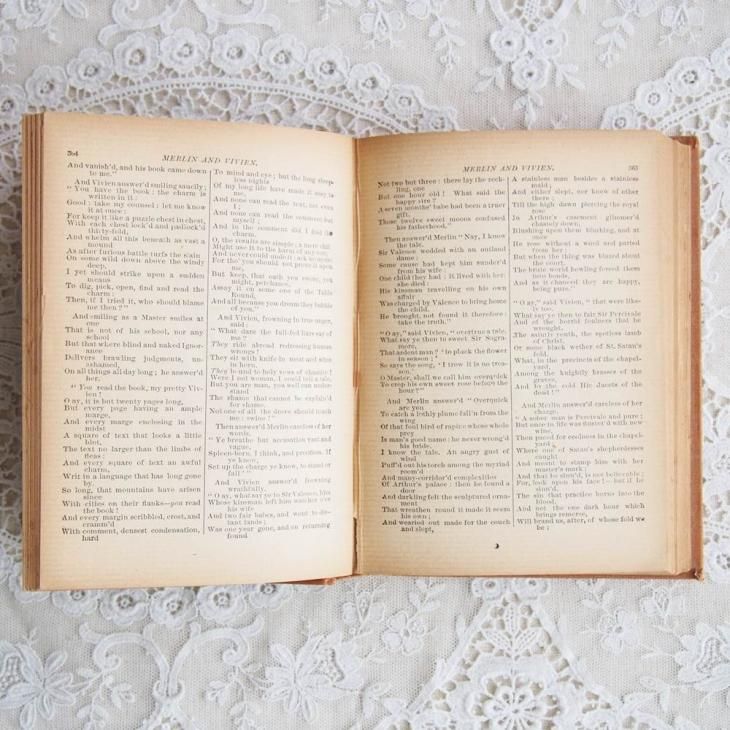 364
MERLIN AND VIVIEN.
And vanish'd, and his book came down
to me."
And Vivien answer'd smiling saucily;
"You have the book: the charm is
written in it:
Good: take my counsel: let me know
it at once:
For keep it like a puzzle chest in chest,
With each chest lock'd and padlock'd
thirty-fold,
And whelm all this beneath as vast a
mound
As after furious battle turfs the slain
On some wild down above the windy
deep,
I yet should strike upon a sudden
means
To dig, pick, open, find and read the
charm:
Then, if I tried it, who should blame
me then?"
And smiling as a Master smiles at
one
That is not of his school, nor any
school
But that where blind and naked Ignor-
ance
Delivers brawling judgments, un-
ashamed,
On all things all day long; he answer'd
her.
"You read the book, my pretty Viv-
ien!
O ay, it is but twenty pages long,
But every page having an ample
marge,
And every marge enclosing in the
midst
A square of text that looks a little
blot,
The text no larger than the limbs of
fleas;
And every square of text an awful
charm,
Writ in a language that has long gone
by.
So long, that mountains have arisen
since
With cities on their flanks—you read
the book!
And every margin scribbled, crost, and
cramm'd
With comment, densest condensation,
hard
To mind and eye; but the long sleep-
less nights
Of my long life have made it easy to
me.
And none can read the text, not even
I;
And none can read the comment but
myself;
And in the comment did I find the
charm.
O, the results are simple; a mere child
Might use it to the harm of any one,
And never could undo it: ask no more:
For tho' you should not prove it upon
me,
But keep that oath you swore, you
might, perchance,
Assay it on some one of the Table
Round,
And all because you dream they babble
of you."
And Vivien, frowning in true anger,
said:
"What dare the full-fed liars say of
me?
They ride abroad redressing human
wrongs!
They sit with knife in meat and wine
in horn.
They bound to holy vows of chastity!
Were I not woman, I could tell a tale.
But you are man, you well can under-
stand
The shame that cannot be explain'd
for shame.
Not one of all the drove should touch
me: swine!"
Then answer'd Merlin careless of her
words.
"Ye breathe but accusation vast and
vague,
Spleen-born, I think, and proofless. If
ye know,
Set up the charge ye know, to stand or
fall!"
And Vivien answer'd frowning
wrathfully.
"O ay, what say ye to Sir Valence, him
Whose kinsman left him watcher o'er
his wife
And two fair babes, and went to dis-
tant lands;
Was one year gone, and on returning
found
MERLIN AND VIVIEN.
365
Not two but three: there lay the reck-
ling, one
But one hour old! What said the
happy sire?
A seven months' babe had been a truer
gift.
Those twelve sweet moons confused
his fatherhood."
Then answer'd Merlin "Nay, I know
the tale.
Sir Valence wedded with an outland
dame:
Some cause had kept him sunder'd
from his wife:
One child they had: it lived with her:
she died:
His kinsman travelling on his own
affair
Was charged by Valence to bring home
the child.
He brought, not found it therefore:
take the truth."
"O ay," said Vivien, "overtrue a tale.
What say ye then to sweet Sir Sagra-
more,
That ardent man? 'to pluck the flower
in season';
So says the song, 'I trow it is no trea-
son.'
O Master, shall we call him overquick
To crop his own sweet rose before the
hour?"
And Merlin answer'd "Overquick
are you
To catch a lothly plume fall'n from the
wing
Of that foul bird of rapine whose whole
prey
Is man's good name: he never wrong'd
his bride.
I know the tale. An angry gust of
wind
Puff'd out his torch among the myriad
room'd
And many-corridor'd complexities
Of Arthur's palace: then he found a
door
And darkling felt the sculptured orna-
ment
That wreathen round it made it seem
his own;
And wearied out made for the couch
and slept,
A stainless man besides a stainless
maid;
And either slept, nor knew of other
there;
Till the high dawn piercing the royal
rose
In Arthur's casement glimmer'd
chastely down,
Blushing upon them blushing, and at
once
He rose without a word and parted
from her:
But when the thing was blazed about
the court,
The brute world howling forced them
into bonds,
And as it chanced they are happy,
being pure."
"O ay," said Vivien, "that were like-
ly too.
What say ye then to fair Sir Percivale
And of the horrid foulness that he
wrought,
The saintly youth, the spotless lamb
of Christ,
Or some black wether of St. Satan's
fold.
What, in the precincts of the chapel-
yard,
Among the knightly brasses of the
graves,
And by the cold Hic Jacets of the
dead!"
And Merlin answer'd careless of her
charge.
"A sober man is Percivale and pure;
But once in life was fluster'd with new
wine,
Then paced for coolness in the chapel-
yard,
Where one of Satan's shepherdesses
caught
And meant to stamp him with her
master's mark;
And that he sinn'd, is not believable;
For, look upon his face!—but if he
sinn'd,
The sin that practice burns into the
blood,
And not the one dark hour which
brings remorse,
Will brand us, after, of whose fold we
be: